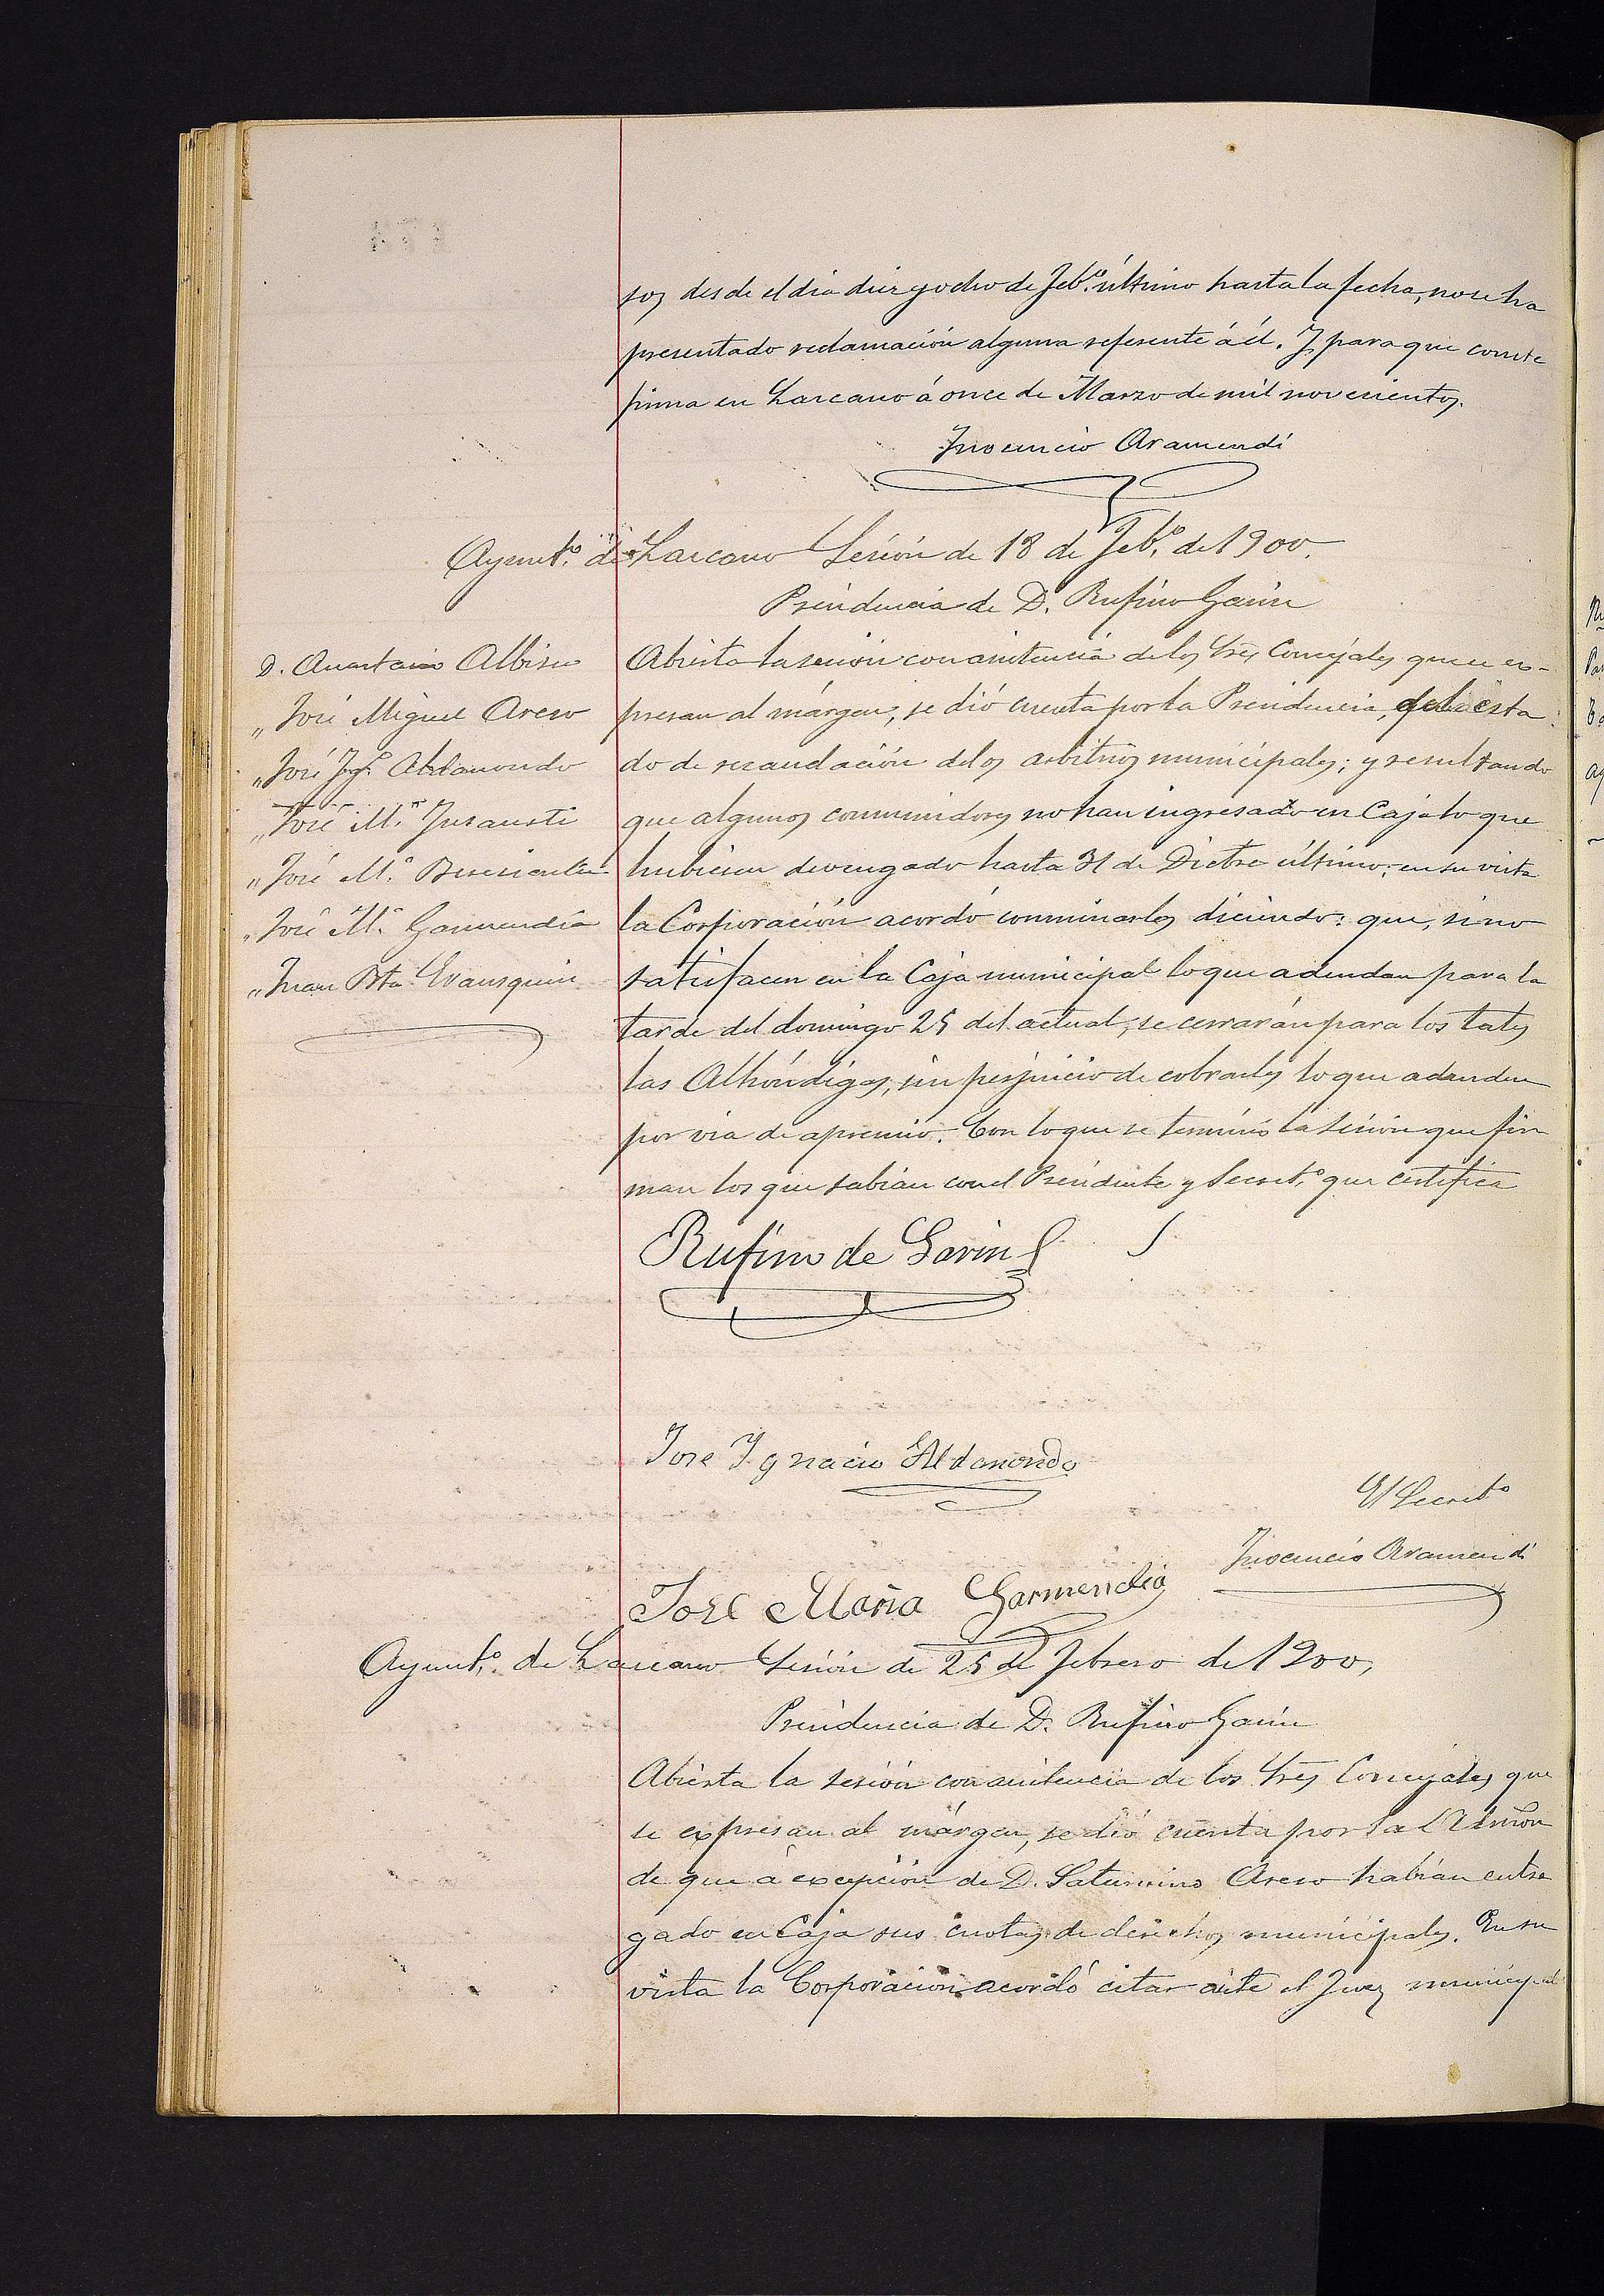 sos desde el dia diez y ocho de Feb.º último hasta la fecha, no se ha
presentado reclamación alguna referente á él. Y para que conste
firma en Lazcano á once de Marzo de mil novecientos.
Inocencio Aramendi
Ayunt.º de Lazcano Sesión de 18 de Feb.º de 1900.
Presidencia de D. Rufino Garin
D. Anastasio Albisu
„ José Miguel Areso
„ José Ig.º Aldanondo
„ José M.ª Insausti
„ José M.ª
„ José M.ª Garmendia
„ Juan Bta
Abierta la sesión con asistencia de los Sres Concejales que se es-
presan al márgen, se dió cuenta por la Presidencia, del esta-
do de recaudación de los arbitrios municipales; y resultando
que algunos consumidores no han ingresado en Caja lo que
hubiesen devengado hasta 31 de Dictre último; en su vista
la Corporación acordó conminarles diciendo: que, si no
satisfacen en la Caja municipal lo que adeudan para la
tarde del domingo 25 del actual, se cerrarán para los tales
las Alhóndigas, sin perjuicio de cobrarles lo que adeuden
por via de apremio. Con lo que se terminó la sesión que fir
man los que sabian con el Presidente y Secret.º que certifica
Rufino de Garin
Jose Ygnacio Aldanondo
El Secret.º
Inocencio Aramendi
José Maria Garmendia
Ayunt.º de Lazcano Sesión de 25 de Febrero de 1900,
Presidencia de D. Rufino Garin
Abierta la sesión con asistencia de los Sres Concejales que
se expresan al márgen, se dió cuenta por la Admon
de que á excepción de D. Saturnino Areso habían entre
gado en Caja sus cuotas de derechos municipales. En su
vista la Corporación acordó citar ante el Juez municipal